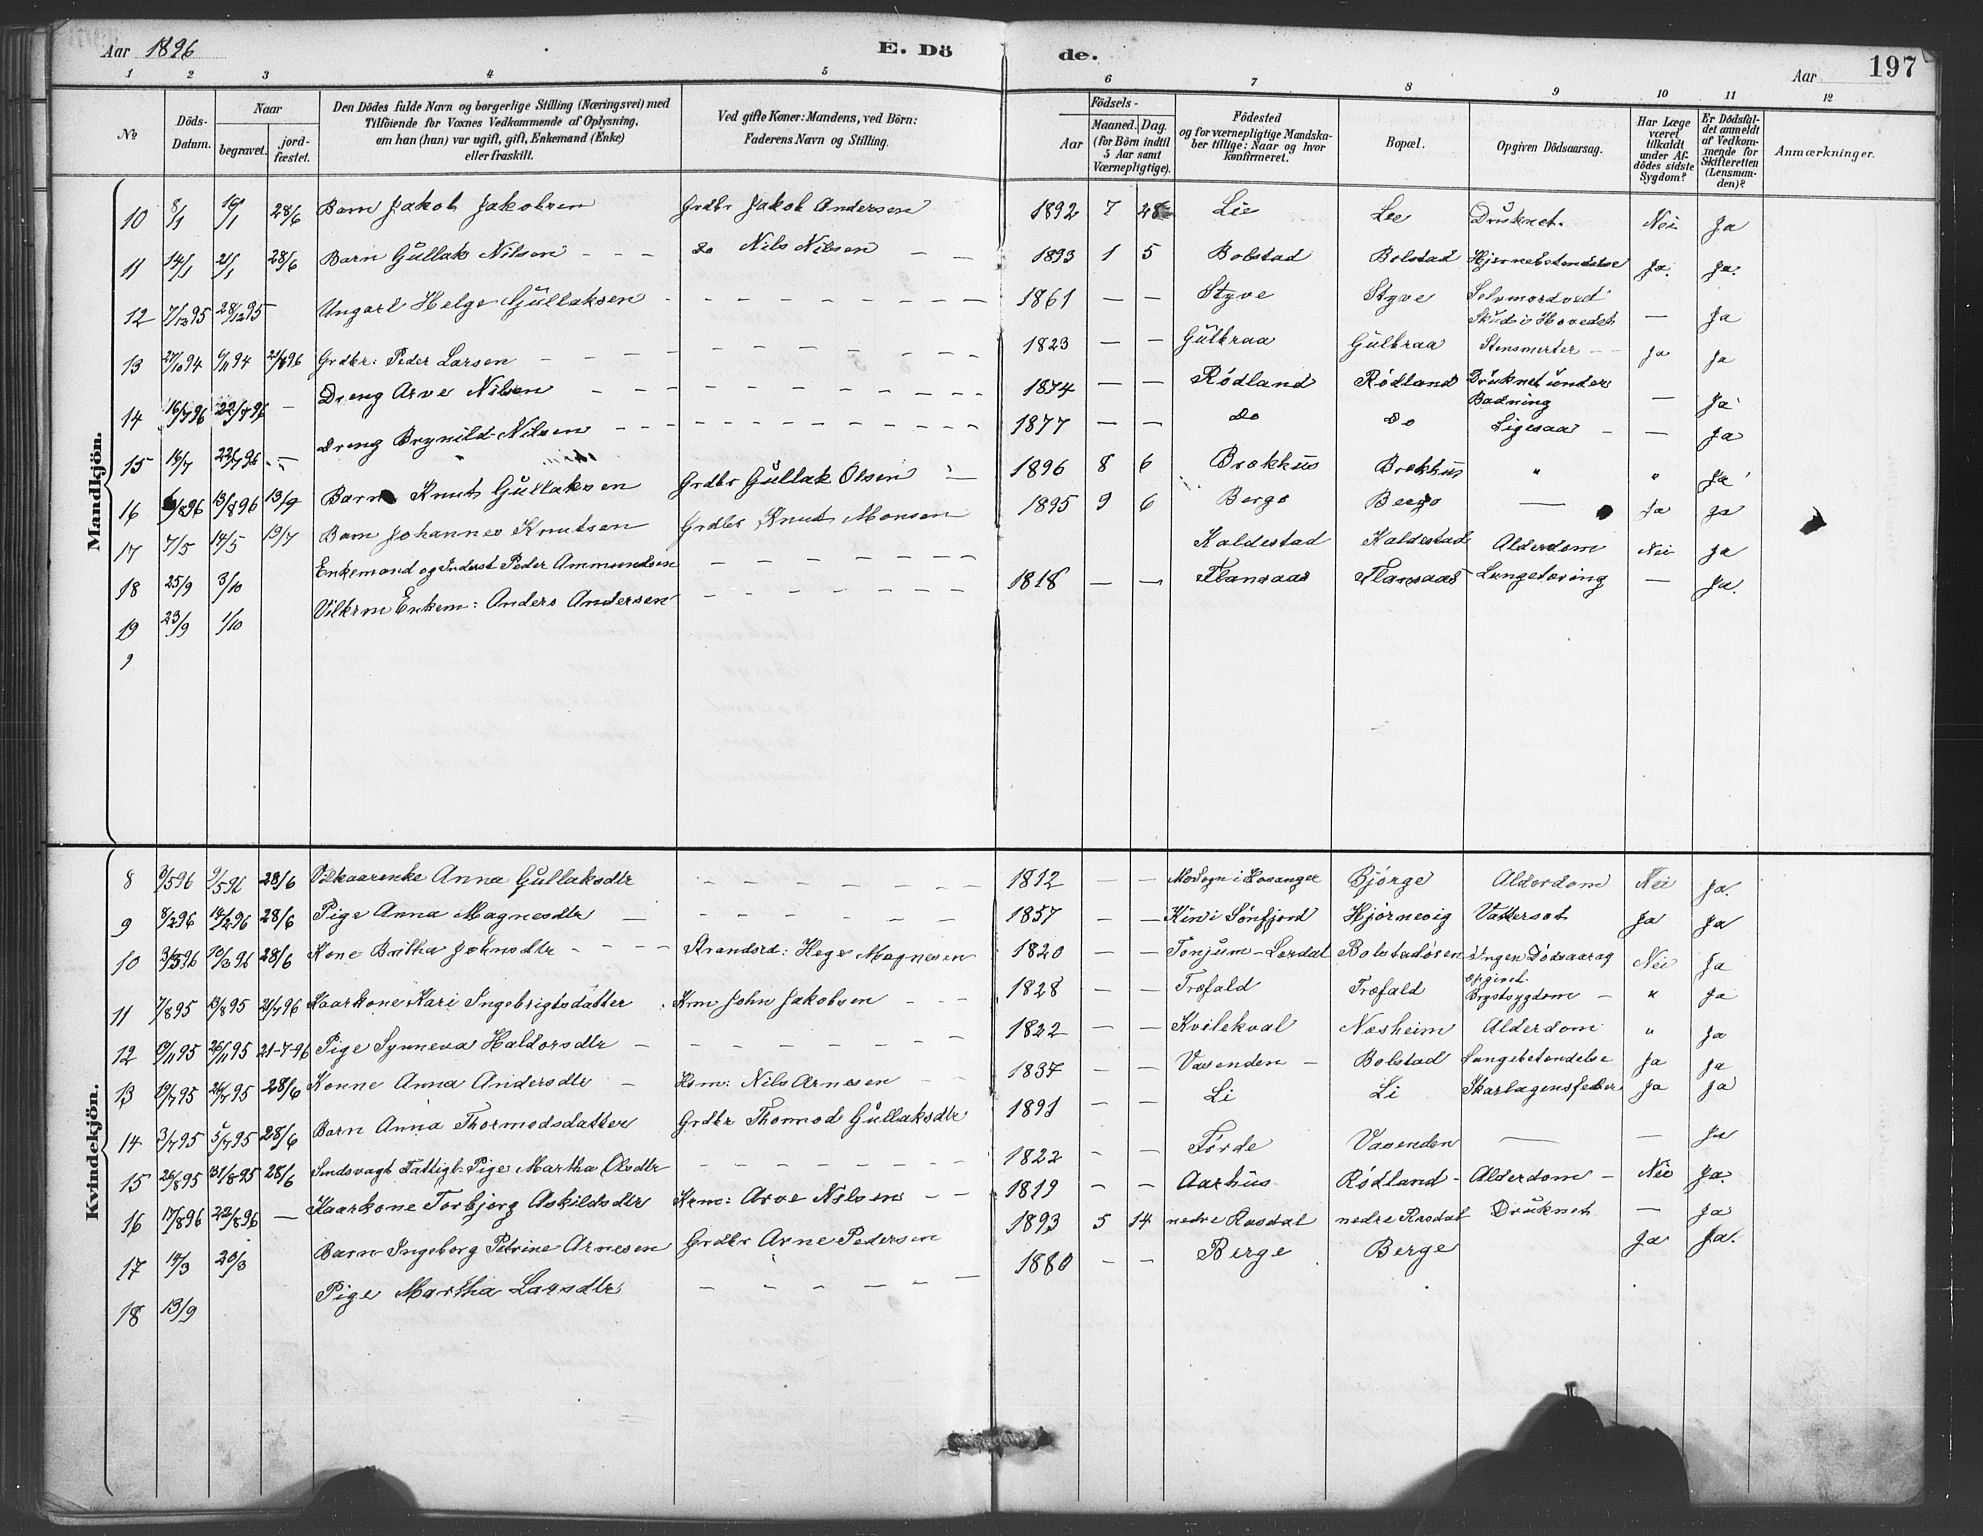 Aar 1896 E. Dö de. Aar 197
1 2 3 4 5 6 7 8 9 10 11 12
№ Döds-Datum. Naar begravet. jord-fæstet. Den Dödes fulde Navn og borgerlige Stilling (Næringsvei) med Tilföiende for Voxnes Vedkommende af Oplysning, om han (hun) var ugift, gift, Enkemand (Enke) eller fraskilt. Ved gifte Koner: Mandens, ved Börn: Faderens Navn og Stilling. Födsels- Aar Maaned. Dag. (for Börn indtil 5 Aar samt Værnepligtige). Födested og for værnepligtige Mandskaber tillige: Naar og hvor konfirmeret. Bopæl. Opgiven Dödsaarsag. Har Læge været tilkaldt under Afdödes sidste Sygdom? Er Dödsfaldet anmeldt af Vedkommende for Skifteretten (Lensmanden)? Anmærkninger.
Mandkjön.
10 8/1 16/1 28/6 Barn Jakob Jakobsen Grdbr Jakob Andersen 1892 7 28 Lie Lie Druknet. Nei Ja
11 14/1 21/1 28/6 Barn Gullak Nilsen - - - Do Nils Nilsen - - 1893 1 5 Bolstad Bolstad Hjernebetændelse Ja. Ja.
12 7/12 95 28/12 95 Ungarl Helge Gullaksen - - - 1861 — — Styve Styve Selvmord ved Skud i Hovedet — Ja
13 27/10 94 6/11 94 21/7 96 Grdbr: Peder Larsen - - - 1823 — — Gulbraa Gulbraa Stensmerter - - Ja Ja
14 16/7 96 22/7 96 — Dreng Arve Nilsen - - - 1874 — — Rödland Rödland Druknet under Badning — Ja
15 16/7 22/7 96 — Dreng Brynild Nilsen - - - 1877 — — Do Do Ligesaa - — Ja
16 6/8 96 13/8 96 13/9 Barn Knut Gullaksen Grdbr Gullak Olsen - 1896 8 6 Brækhus Brækhus " " Ja
17 7/5 14/5 19/7 Barn Johannes Knutsen Grdbr Knut Monsen 1895 9 6 Berge Berge — Ja Ja
18 25/9 3/10 Enkemand og Inderst Peder Ammundsen - - - Kaldestad Kaldestad Alderdom Nei Ja
19 23/9 1/10 Vilkrm Enkem: Anders Andersen - - - 1818 — — Flansaas Flansaas Lungetæring — Ja.
9
Kvindekjön.
8 3/5 96 9/5 96 28/6 Vilkaarenke Anna Gullaksdtr - - - 1812 — — i Hosanger Bjørge Alderdom Nei Ja.
9 8/2 96 14/2 96 28/6 Pige Anna Magnesdtr - - - 1857 — — Kinn i Sønfjord Hjørnevig Vattersot Ja Ja
10 3/3 96 10/3 96 28/6 Kone Britha Johnsdtr - - - Strandsd: Hege Magnesen 1820 — — Tonjum - Lærdal Bolstadøren Ingen Dödsaarsag opgivet Nei Ja
11 7/8 95 13/8 95 21/7 96 Kaarkone Kari Ingebrigtsdatter Krm John Jakobsen - - - 1828 — — Træfald Træfald Brystsygdom - " Ja
12 19/11 95 26/11 95 21-7-96 Pige Synneva Haldorsdtr - - - 1822 — — Kvilekval Næsheim Alderdom " Ja
13 19/7 95 26/7 95 28/6 Konne Anna Andersdtr - Hsm: Nils Arnesen - - 1837 — — Vasenden - Bolstad Lungebetændelse Ja Ja
14 3/7 95 5/7 95 28/6 Barn Anna Thormodsdatter Grdbr Thomod Gullaksdtr 1891 — — Li Li Skarlagensfeber Ja Ja
15 26/8 95 31/8 95 28/6 Sindsvagt Fattigl. Pige Martha Olsdtr - - - 1822 — — Førde Vasenden — — Ja
16 17/8 96 22/8 96 — Kaarkone Torbjørg Askildsdtr Krm: Arve Nilsen - - 1819 - - Aarhus Rödland - Alderdom - Nei Ja.
17 14/3 20/3 Barn Ingeborg Petrine Arnesen Grdbr Arne Pedersen 1893 5 14 nedre Rasdal nedre Rasdal Druknet — Ja
18 13/9 Pige Martha Larsdtr - - - 1880 - - Berge Berge Ja Ja.